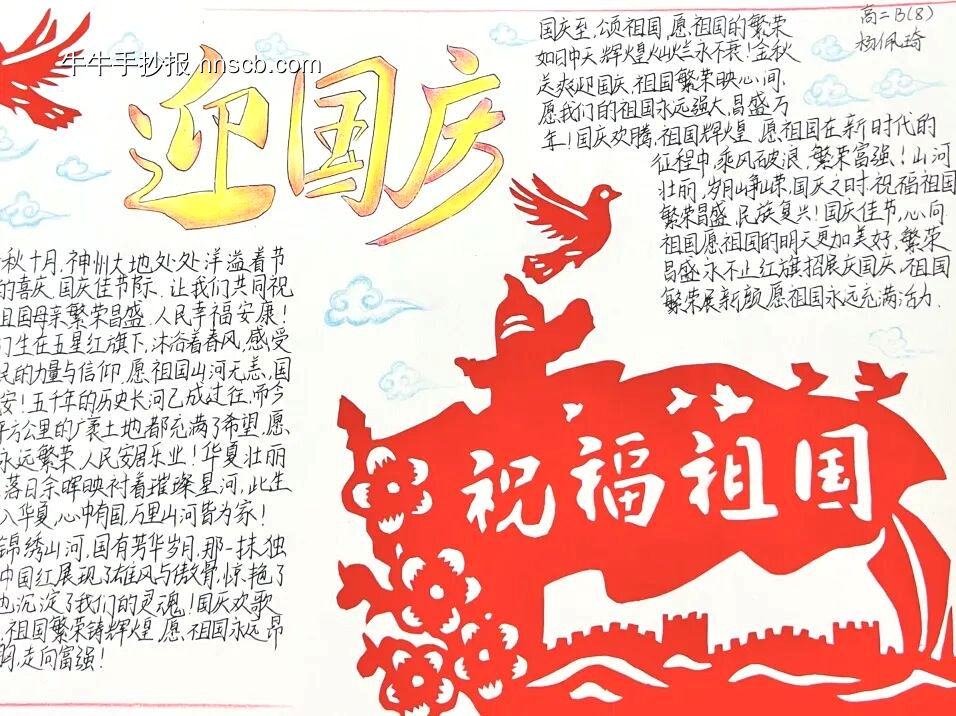 牛牛手抄报 hnscb.com
迎国庆
高二B(8)
杨佩琦
国庆至,颂祖国,愿祖国的繁荣
如日中天,辉煌灿烂永不衰!金秋
送爽迎国庆,祖国繁荣映心间.
愿我们的祖国永远强大,昌盛万
年!国庆欢腾,祖国辉煌.愿祖国在新时代的
征程中,乘风破浪,繁荣富强!山河
壮丽,岁月峥嵘,国庆之时,祝福祖国
繁荣昌盛,民族复兴!国庆佳节,心向
祖国愿祖国的明天更加美好,繁荣
昌盛永不止红旗招展庆国庆,祖国
繁荣展新颜,愿祖国永远充满活力.
秋十月,神州大地处处洋溢着节
的喜庆.国庆佳节际.让我们共同祝
祖国母亲繁荣昌盛.人民幸福安康!
们生在五星红旗下,沐浴着春风,感受
民的力量与信仰.愿祖国山河无恙,国
安!五千年的历史长河已成过往,而今
平方公里的广袤土地都充满了希望.愿
永远繁荣.人民安居乐业!华夏壮丽
落日余晖映衬着璀璨星河,此生
入华夏,心中有国,万里山河皆为家!
锦绣山河,国有芳华岁月,那一抹独
中国红展现了雄风与傲骨,惊艳了
也沉淀了我们的灵魂!国庆欢歌
,祖国繁荣铸辉煌.愿祖国永远昂
走向富强!
祝福祖国